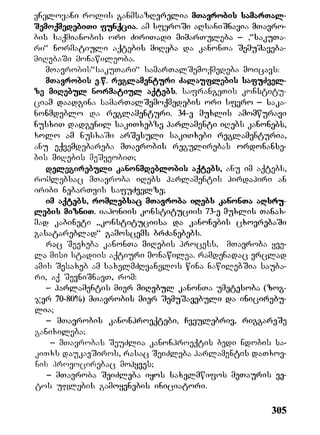 ვნელოვანი როლის განმსაზღვრელია მთავრობის სამართალ-
შემოქმედებითი ფუნქცია. ამ სფეროში აღსანიშნავია მთავრო-
ბის საქმიანობის ორი ძირითადი მიმართულება – „საკუთა-
რი“ ნორმატიული აქტების მიღება და კანონთა შემუშავება-
მიღებაში მონაწილეობა.
მთავრობის/საკუთარი“ სამართალშემოქმედება მოიცავს:
მთავრობის ე.წ. რეგლამენტური ძალაუფლების საფუძველ-
ზე მიღებულ ნორმატიულ აქტებს. საფრანგეთის კონსტიტუ-
ციამ დაადგინა სამართალშემოქმედების ორი სფერო – საკა-
ნონმდებლო და რეგლამენტური. 34-ე მუხლის ამომწურავი
ნუსხით დადგენილ საკითხებზე პარლამენტი იღებს კანონებს,
ხოლო ამ ნუსხაში არშესული საკითხები რეგლამენტურია,
ანუ ექვემდებარება მთავრობის რეგულირებას ორდონანსე-
ბის მიღების მეშვეობით;
დელეგირებული კანონმდებლობის აქტებს, ანუ იმ აქტებს,
რომლებსაც მთავრობა იღებს პარლამენტის პირდაპირი ან
ირიბი ნებართვის საფუძველზე;
იმ აქტებს, რომლებსაც მთავრობა იღებს კანონთა აღსრუ-
ლების მიზნით. იაპონიის კონსტიტუციის 73-ე მუხლის თანახ-
მად კაბინეტი „კონსტიტუციისა და კანონების ცხოვრებაში
გასატარებლად“ გამოსცემს ბრძანებებს.
რაც შეეხება კანონთა მიღების პროცესს, მთავრობა ყვე-
ლა მისი სტადიის აქტიური მონაწილეა. რამდენადაც ვრცლად
ამის შესახებ ამ სახელმძღვანელოს წინა ნაწილებშია საუბა-
რი, აქ შევნიშნავთ, რომ:
– პარლამენტის მიერ მიღებულ კანონთა უმეტესობა (ზოგ-
ჯერ 70-80%) მთავრობის მიერ შემუშავებული და ინიცირებუ-
ლია;
– მთავრობის კანონპროექტები, ჩვეულებრივ, რიგგარეშე
განიხილება;
– მთავრობას შეუძლია კანონპროექტის ბედი ნდობის სა-
კითხს დაუკავშიროს, რასაც შეიძლება პარლამენტის დათხოვ-
ნის პროვოცირებაც მოჰყვეს;
– მთავრობა შეიძლება იყოს სახელმწიფოს მეთაურის ვე-
ტოს უფლების გამოყენების ინიციატორი.
305